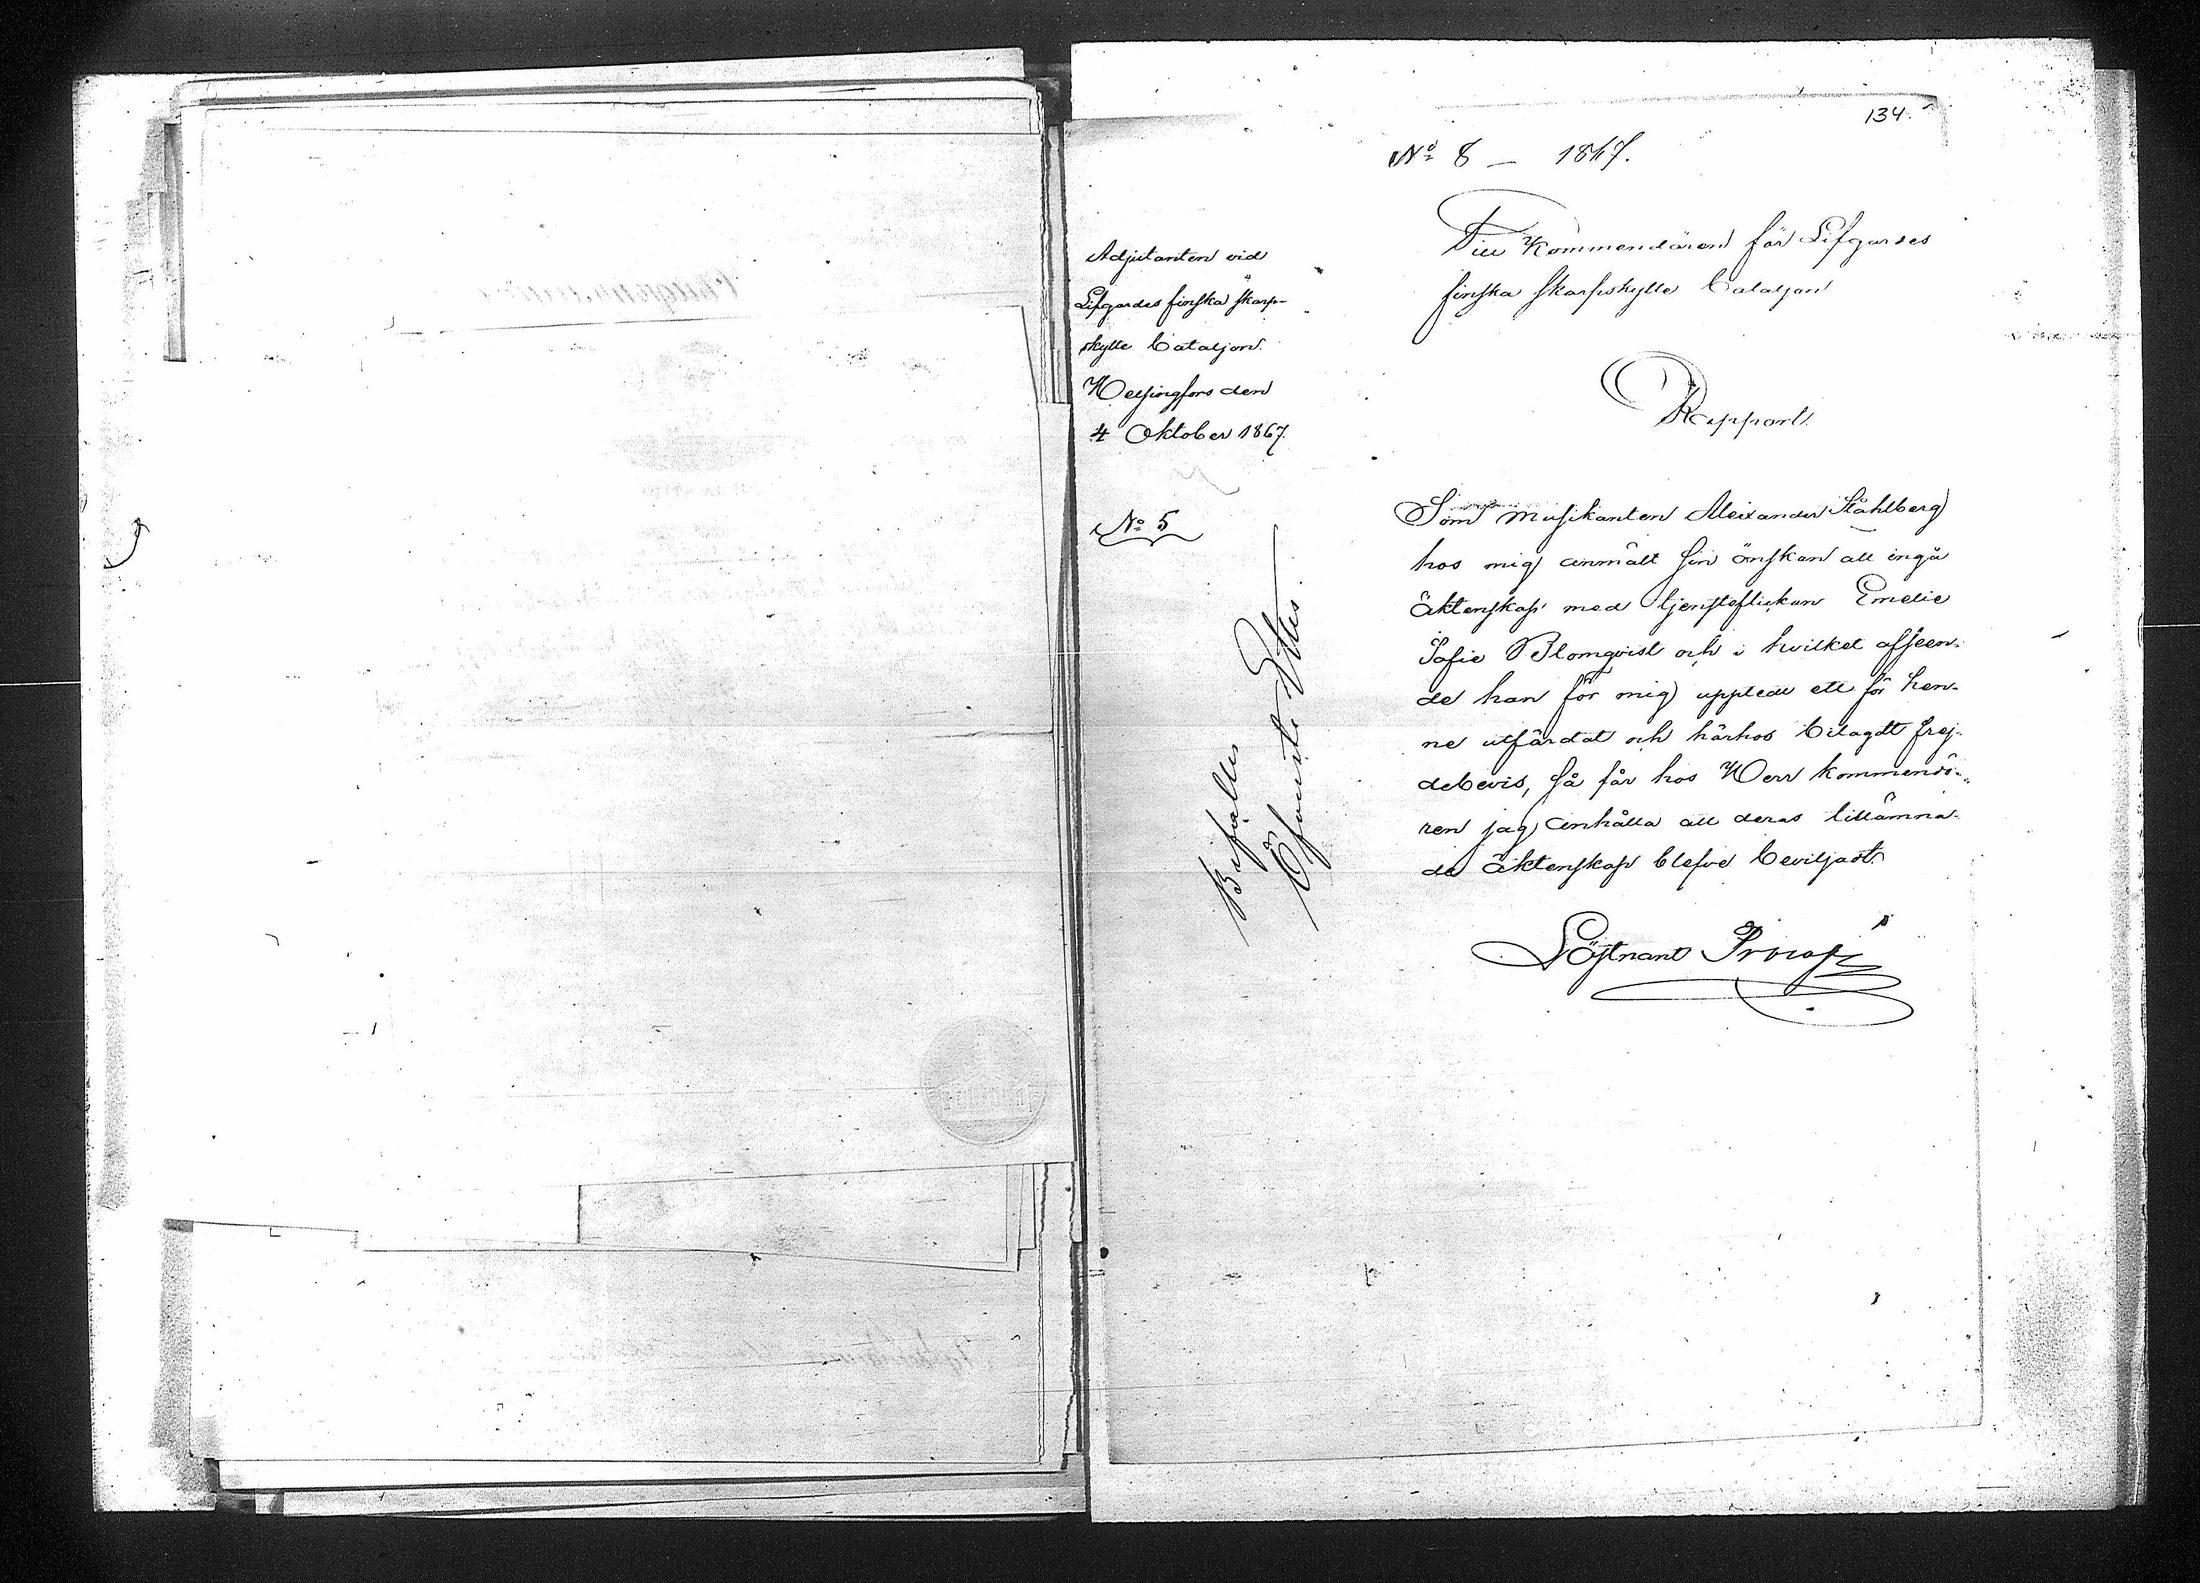 134.
No 8 — 1867.
Adjutanten vid
Lifgardes finska skarp-
skytte bataljon.
Helsingfors den
4 Oktober 1867.
No 5
Till Kommendören för Lifgardes
finska skarpskytte bataljon
Rapport.
Som musikanten Alexander Ståhlberg
hos mig anmält sin önskan att ingå
äktenskap med tjensteflickan Emelie
Sofie Blomqvist och i hvilket afseen-
de han för mig upptedt ett för hen-
ne utfärdat och härhos bilagdt frej-
debevis, så får hos Herr kommendö-
ren jag anhålla att deras tillämna-
de äktenskap blefve beviljadt.
Löjtnant Procopé
Bifalles
Öfverste